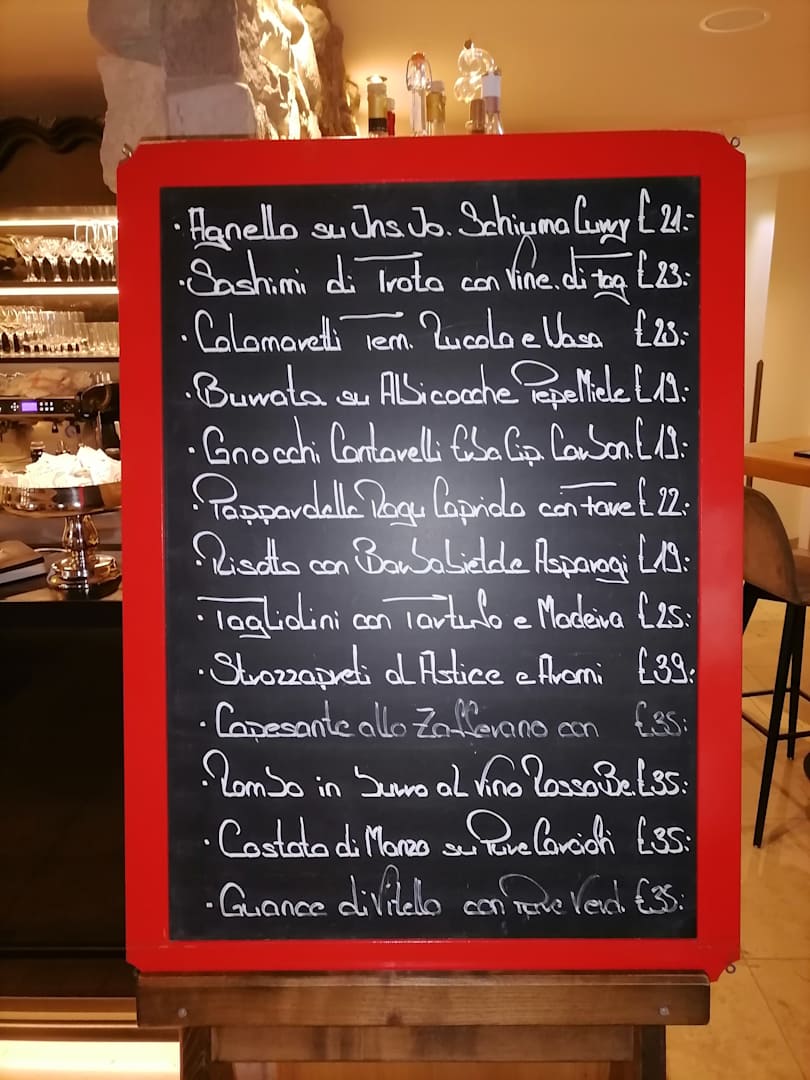 · Agnello su Ins. Jo. Schiuma Curry £ 21:-
· Sashimi di Trota con Vine. di tag £ 23:-
· Calamaretti Tem. Rucola e Vasa £ 23:-
· Burrata su Albicocche Pepe Miele £ 19:-
· Gnocchi Cantarelli Erba Cip. Carbon. £ 19:-
· Pappardelle Ragu Capriolo con fave £ 22:-
· Risotto con Barbabietole Asparagi £ 19:-
· Tagliolini con Tartufo e Madeira £ 25:-
· Strozzapreti al Astice e Aromi £ 39:-
· Capesante allo Zafferano con £ 35:-
· Rombo in burro al Vino Rosso Be. £ 35:-
· Costata di Manzo su Pure Carciofi £ 35:-
· Guance di Vitello con Verd. £ 35:-